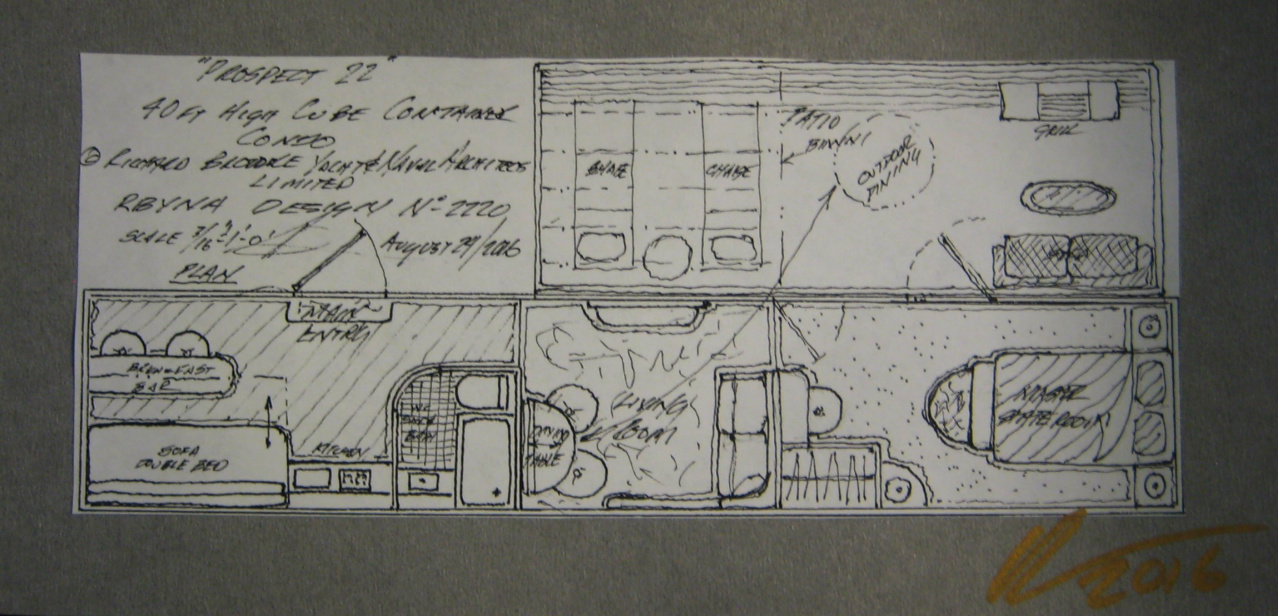 "PROSPECT 22"
40 FT HIGH CUBE CONTAINER
CONDO
© RICHARD BOODLE YACHT & NAVAL ARCHITECTS
LIMITED
RBYNA DESIGN Nº 2220
SCALE 3/16"=1'-0"
AUGUST 29/2016
PLAN
PATIO
BIMINI
GRILL
CHAISE
CHAISE
OUTDOOR
DINING
MAIN
ENTRY
BREAKFAST
BAR
SOFA
DOUBLE BED
KITCHEN
DINING
TABLE
LIVING
ROOM
MASTER
STATEROOM
2016